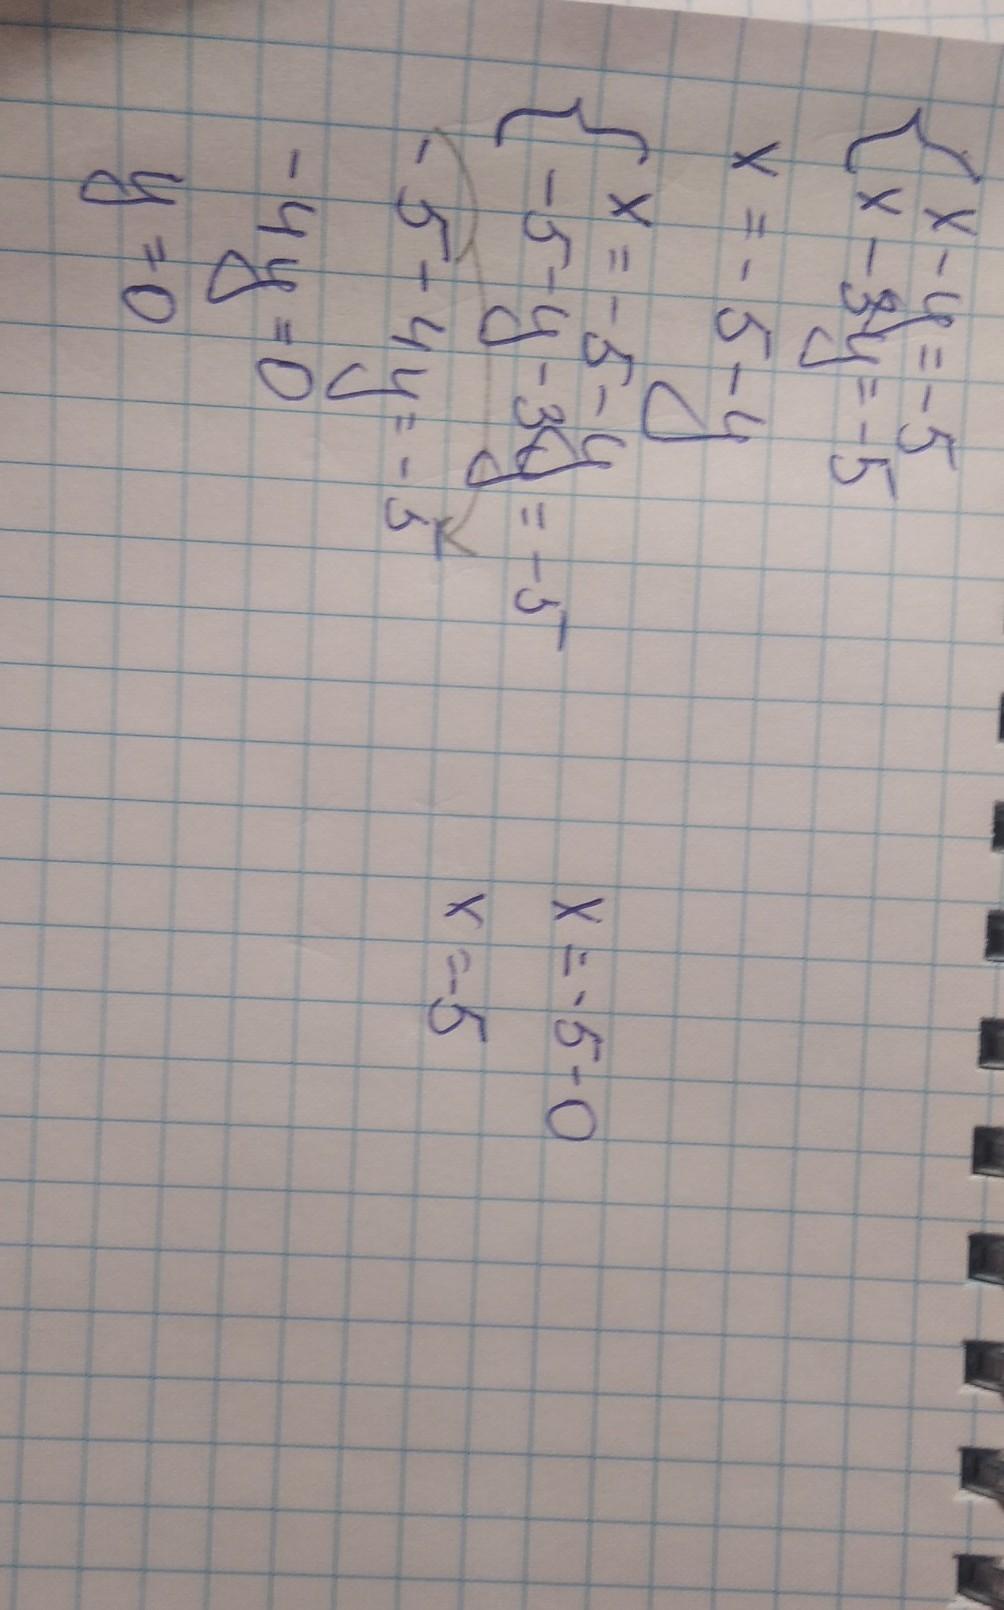 { x - y = -5
x - 3y = -5
x = -5 - y
{ x = -5 - y
-5 - y - 3y = -5
-5 - 4y = -5
-4y = 0
y = 0
x = -5 - 0
x = -5